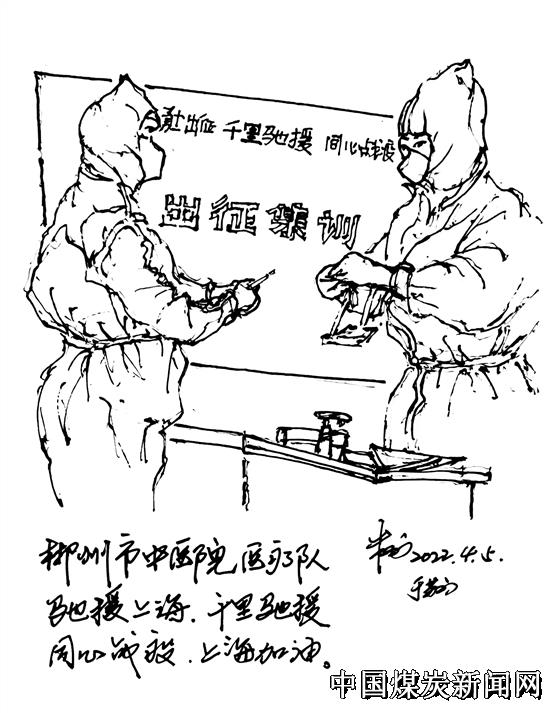 勇士出征 千里驰援 同心战疫
出征集训
郴州市中医院医疗队
驰援上海、千里驰援
同心战疫、上海加油。
2022.4.5.
中国煤炭新闻网